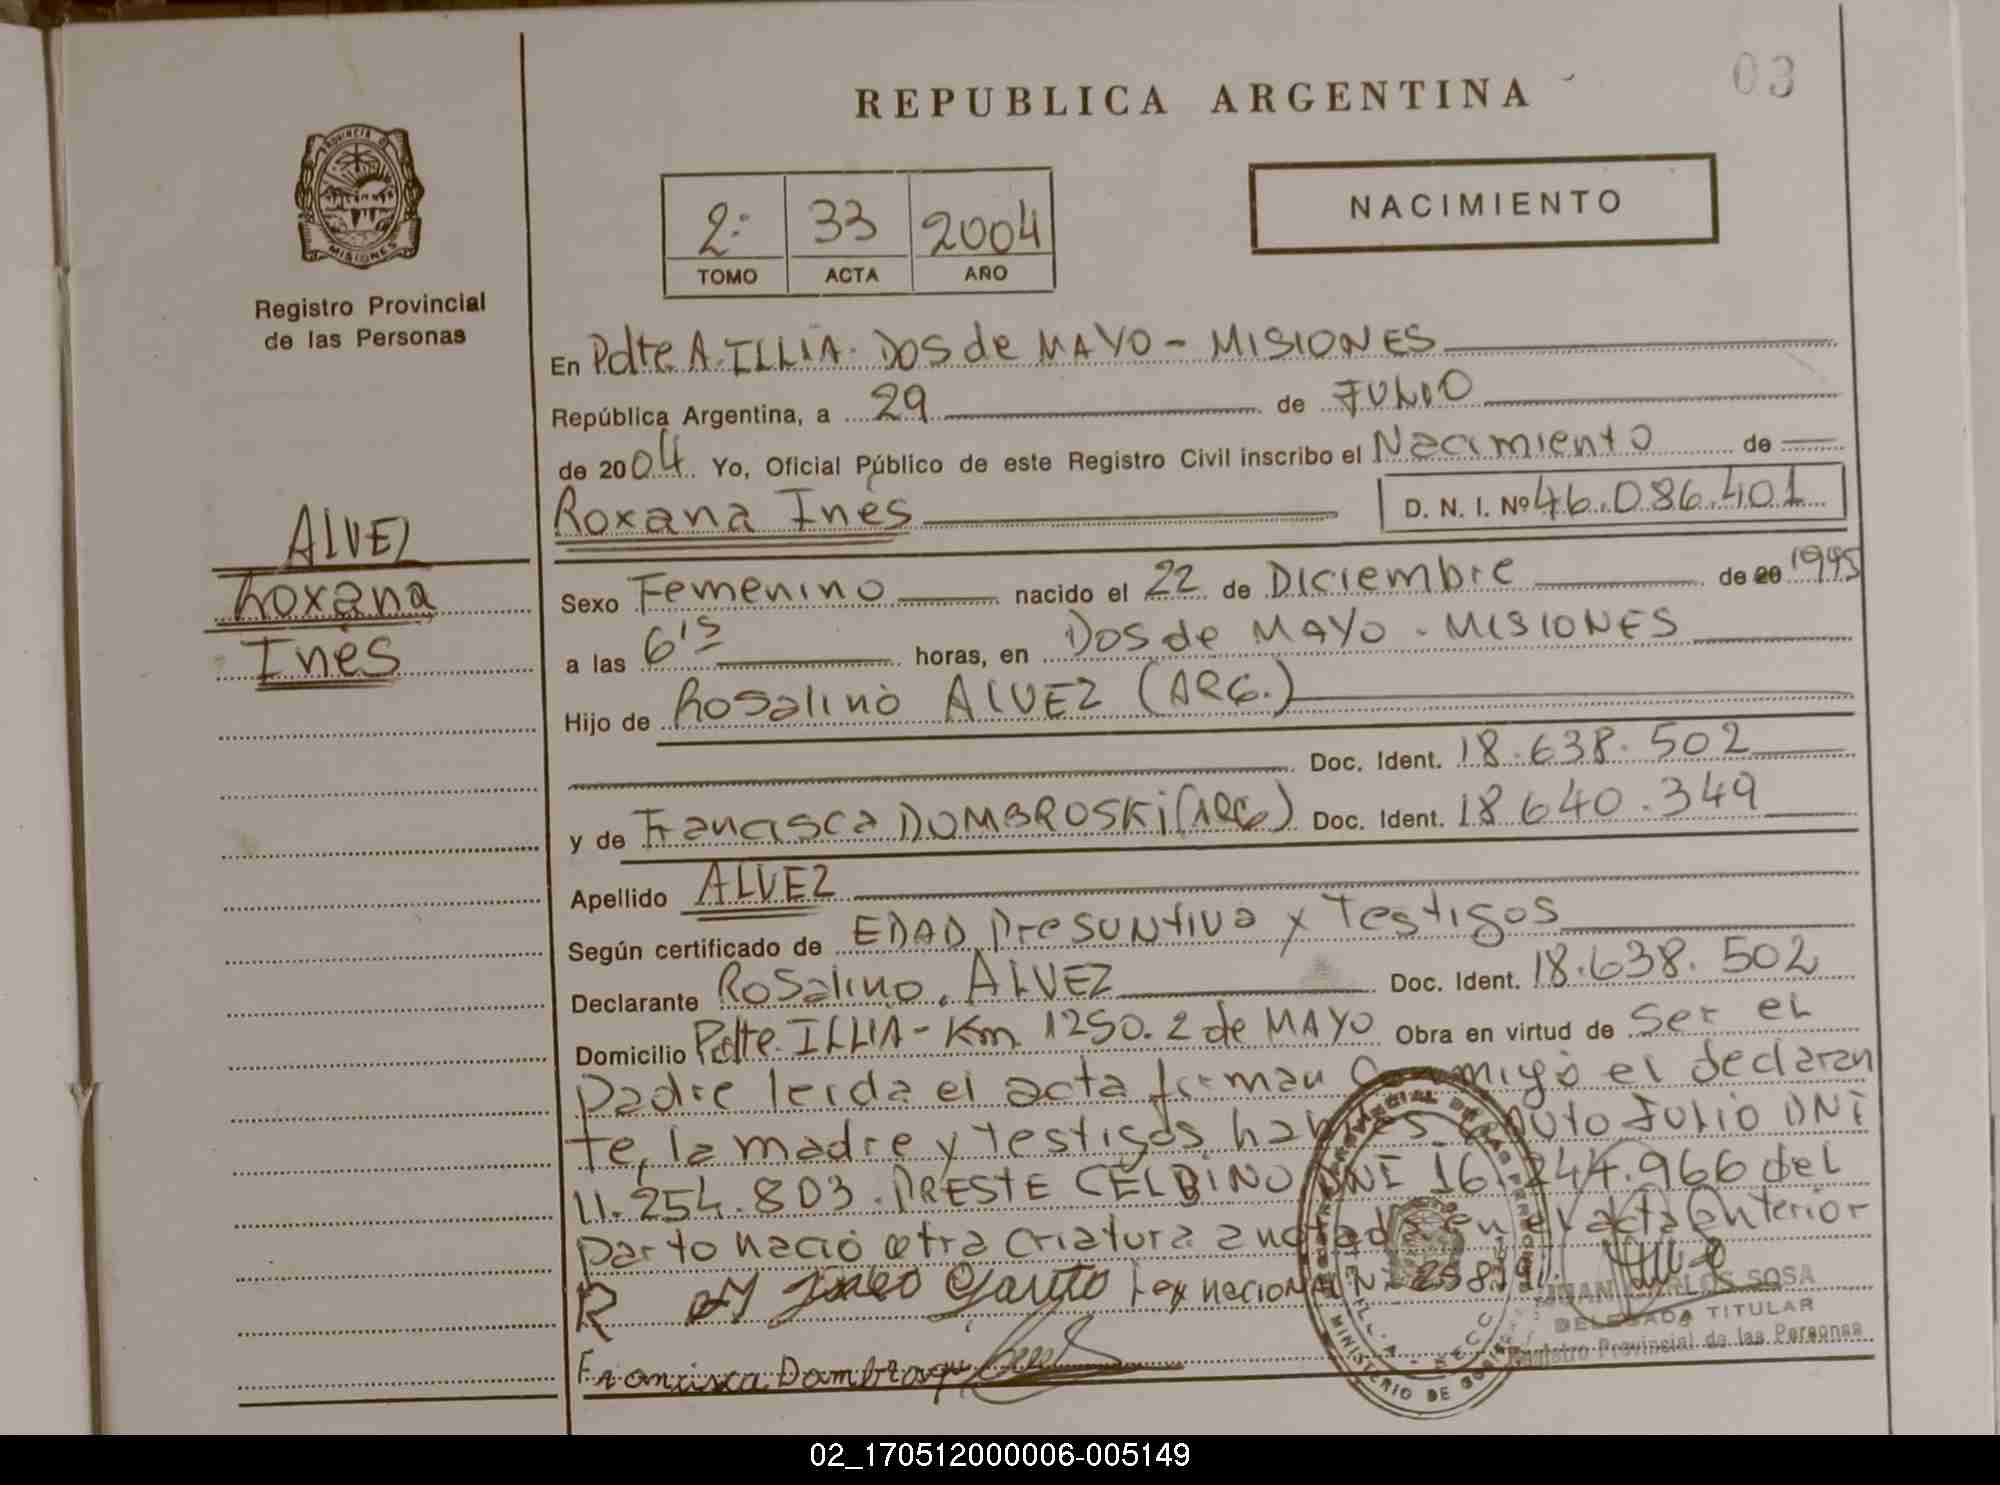 REPUBLICA ARGENTINA
03
PROVINCIA DE
MISIONES
Registro Provincial
de las Personas
2º
33
2004
TOMO
ACTA
AÑO
NACIMIENTO
En Pdte A. ILLIA. DOS de MAYO - MISIONES
República Argentina, a 29 de JULIO
de 2004. Yo, Oficial Público de este Registro Civil inscribo el Nacimiento de
Roxana Inés D. N. I. Nº 46.086.401
ALVEZ
Roxana
Inés
Sexo Femenino nacido el 22 de Diciembre de 20 1995
a las 6'15 horas, en Dos de MAYO - MISIONES
Hijo de Rosalino ALVEZ (ARG.)
Doc. Ident. 18.638.502
y de Francisca DOMBROSKi (ARG) Doc. Ident. 18 640.349
Apellido ALVEZ
Según certificado de EDAD Presuntiva x Testigos
Declarante Rosalino. ALVEZ Doc. Ident. 18.638.502
Domicilio Pdte. ILLIA - Km 1250. 2 de MAYO Obra en virtud de Ser el
padre leida el acta firman conmigo el declaran
te, la madre y testigos habiles JULIO DNI
11.254.803. PRESTE CELBINO DNI 16.244.966 del
parto nació otra criatura anotada en el acta anterior
R Ley nacional Nº
JUAN CARLOS SOSA
DELEGADA TITULAR
Registro Provincial de las Personas
Francisca
MINISTERIO DE
02_170512000006-005149